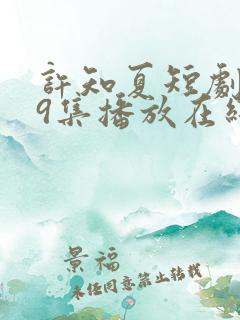 許知夏短劇
9集播放在線
景福
未經同意禁止轉載